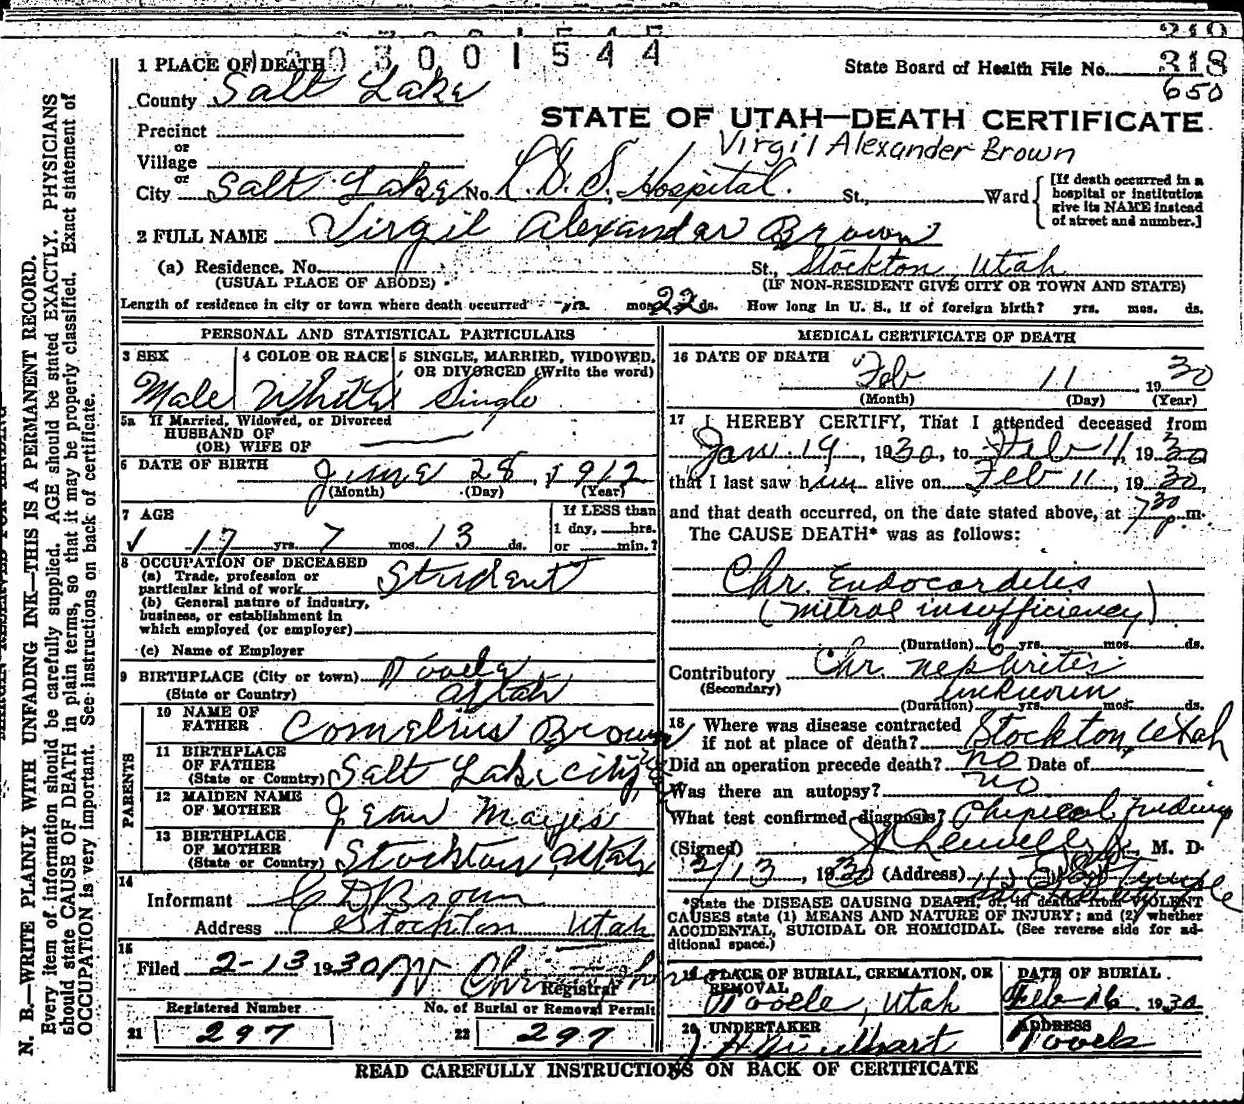 03001544
1 PLACE OF DEATH
State Board of Health File No. 318
650
County Salt Lake
STATE OF UTAH—DEATH CERTIFICATE
Precinct
or
Village
Virgil Alexander Brown
or
City Salt Lake No. L.D.S. Hospital. St., Ward
[If death occurred in a
hospital or institution
give its NAME instead
of street and number.]
2 FULL NAME Virgil Alexander Brown
(a) Residence. No. St., Stockton, Utah
(USUAL PLACE OF ABODE) (IF NON-RESIDENT GIVE CITY OR TOWN AND STATE)
Length of residence in city or town where death occurred - yrs. mos. 22 ds. How long in U. S., if of foreign birth? yrs. mos. ds.
PERSONAL AND STATISTICAL PARTICULARS
3 SEX
Male
4 COLOR OR RACE
White
5 SINGLE, MARRIED, WIDOWED,
OR DIVORCED (Write the word)
Single
5a If Married, Widowed, or Divorced
HUSBAND OF
(OR) WIFE OF
6 DATE OF BIRTH June 28, 1912
(Month) (Day) (Year)
7 AGE
17 yrs. 7 mos. 13 ds.
If LESS than
1 day, hrs.
or min.?
8 OCCUPATION OF DECEASED
(a) Trade, profession or
particular kind of work Student
(b) General nature of industry,
business, or establishment in
which employed (or employer)
(c) Name of Employer
9 BIRTHPLACE (City or town) Tooele
(State or Country) Utah
PARENTS
10 NAME OF
FATHER Cornelius Brown
11 BIRTHPLACE
OF FATHER
(State or Country) Salt Lake City,
12 MAIDEN NAME
OF MOTHER Jean
13 BIRTHPLACE
OF MOTHER
(State or Country) Stockton, Utah
14
Informant C D Brown
Address Stockton Utah
15
Filed 2-13 1930
Registrar
Registered Number No. of Burial or Removal Permit
21 297 22 297
MEDICAL CERTIFICATE OF DEATH
16 DATE OF DEATH
Feb 11, 1930
(Month) (Day) (Year)
17 I HEREBY CERTIFY, That I attended deceased from
Jan. 19, 1930, to Feb 11, 1930
that I last saw him alive on Feb 11, 1930,
and that death occurred, on the date stated above, at 7:30 p. m.
The CAUSE DEATH* was as follows:
Chr. Endocarditis
(mitral insufficiency)
(Duration) 6 yrs. mos. ds.
Contributory Chr. nephritis
(Secondary) unknown
(Duration) yrs. mos. ds.
18 Where was disease contracted
if not at place of death? Stockton, Utah
Did an operation precede death? no Date of
Was there an autopsy? no
What test confirmed diagnosis? Physical findings
(Signed) M. D.
2/13, 1930 (Address) Temple
*State the DISEASE CAUSING DEATH, or, in deaths from VIOLENT
CAUSES state (1) MEANS AND NATURE OF INJURY; and (2) whether
ACCIDENTAL, SUICIDAL OR HOMICIDAL. (See reverse side for ad-
ditional space.)
19 PLACE OF BURIAL, CREMATION, OR
REMOVAL
Tooele, Utah
DATE OF BURIAL
Feb 16 1930
20 UNDERTAKER
ADDRESS
Tooele
READ CAREFULLY INSTRUCTIONS ON BACK OF CERTIFICATE
N. B.—WRITE PLAINLY WITH UNFADING INK—THIS IS A PERMANENT RECORD.
Every item of information should be carefully supplied. AGE should be stated EXACTLY. PHYSICIANS
should state CAUSE OF DEATH in plain terms, so that it may be properly classified. Exact statement of
OCCUPATION is very important. See instructions on back of certificate.